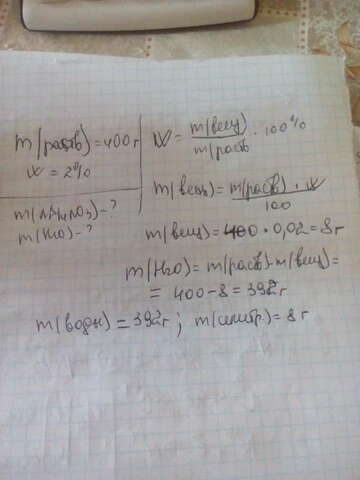 m(раств)=400г
w=2%
m(NH4NO3)-?
m(H2O)-?
w = m(вещ) / m(раств · 100%
m(вещ) = m(раств) · w / 100
m(вещ)= 400 · 0,02=8г
m(H2O)= m(раств)-m(вещ)=
= 400-8=392г
m(воды)=392г; m(селитр)=8г